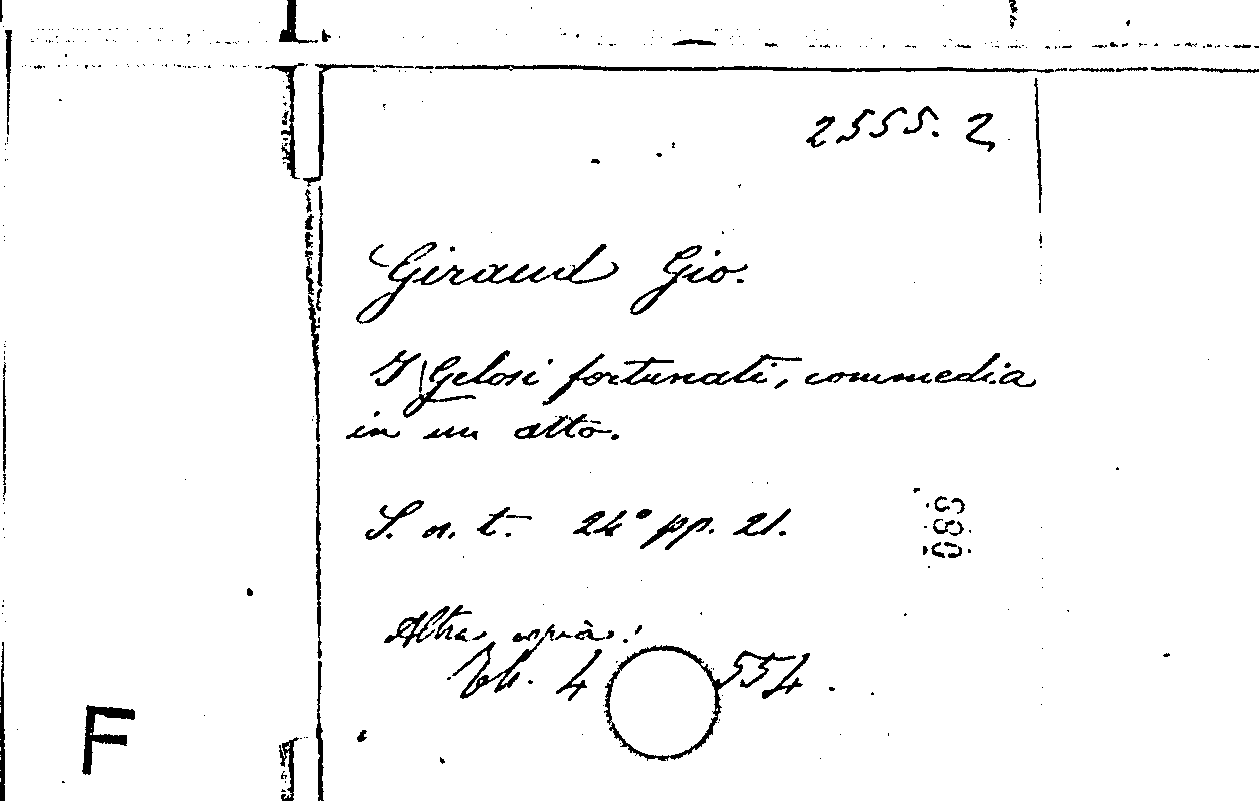 2555. 2
Giraud Gio.
I Gelosi fortunati, commedia
in un atto.
S. n. t. 24° pp. 21.
Altra copia:
4 554.
F